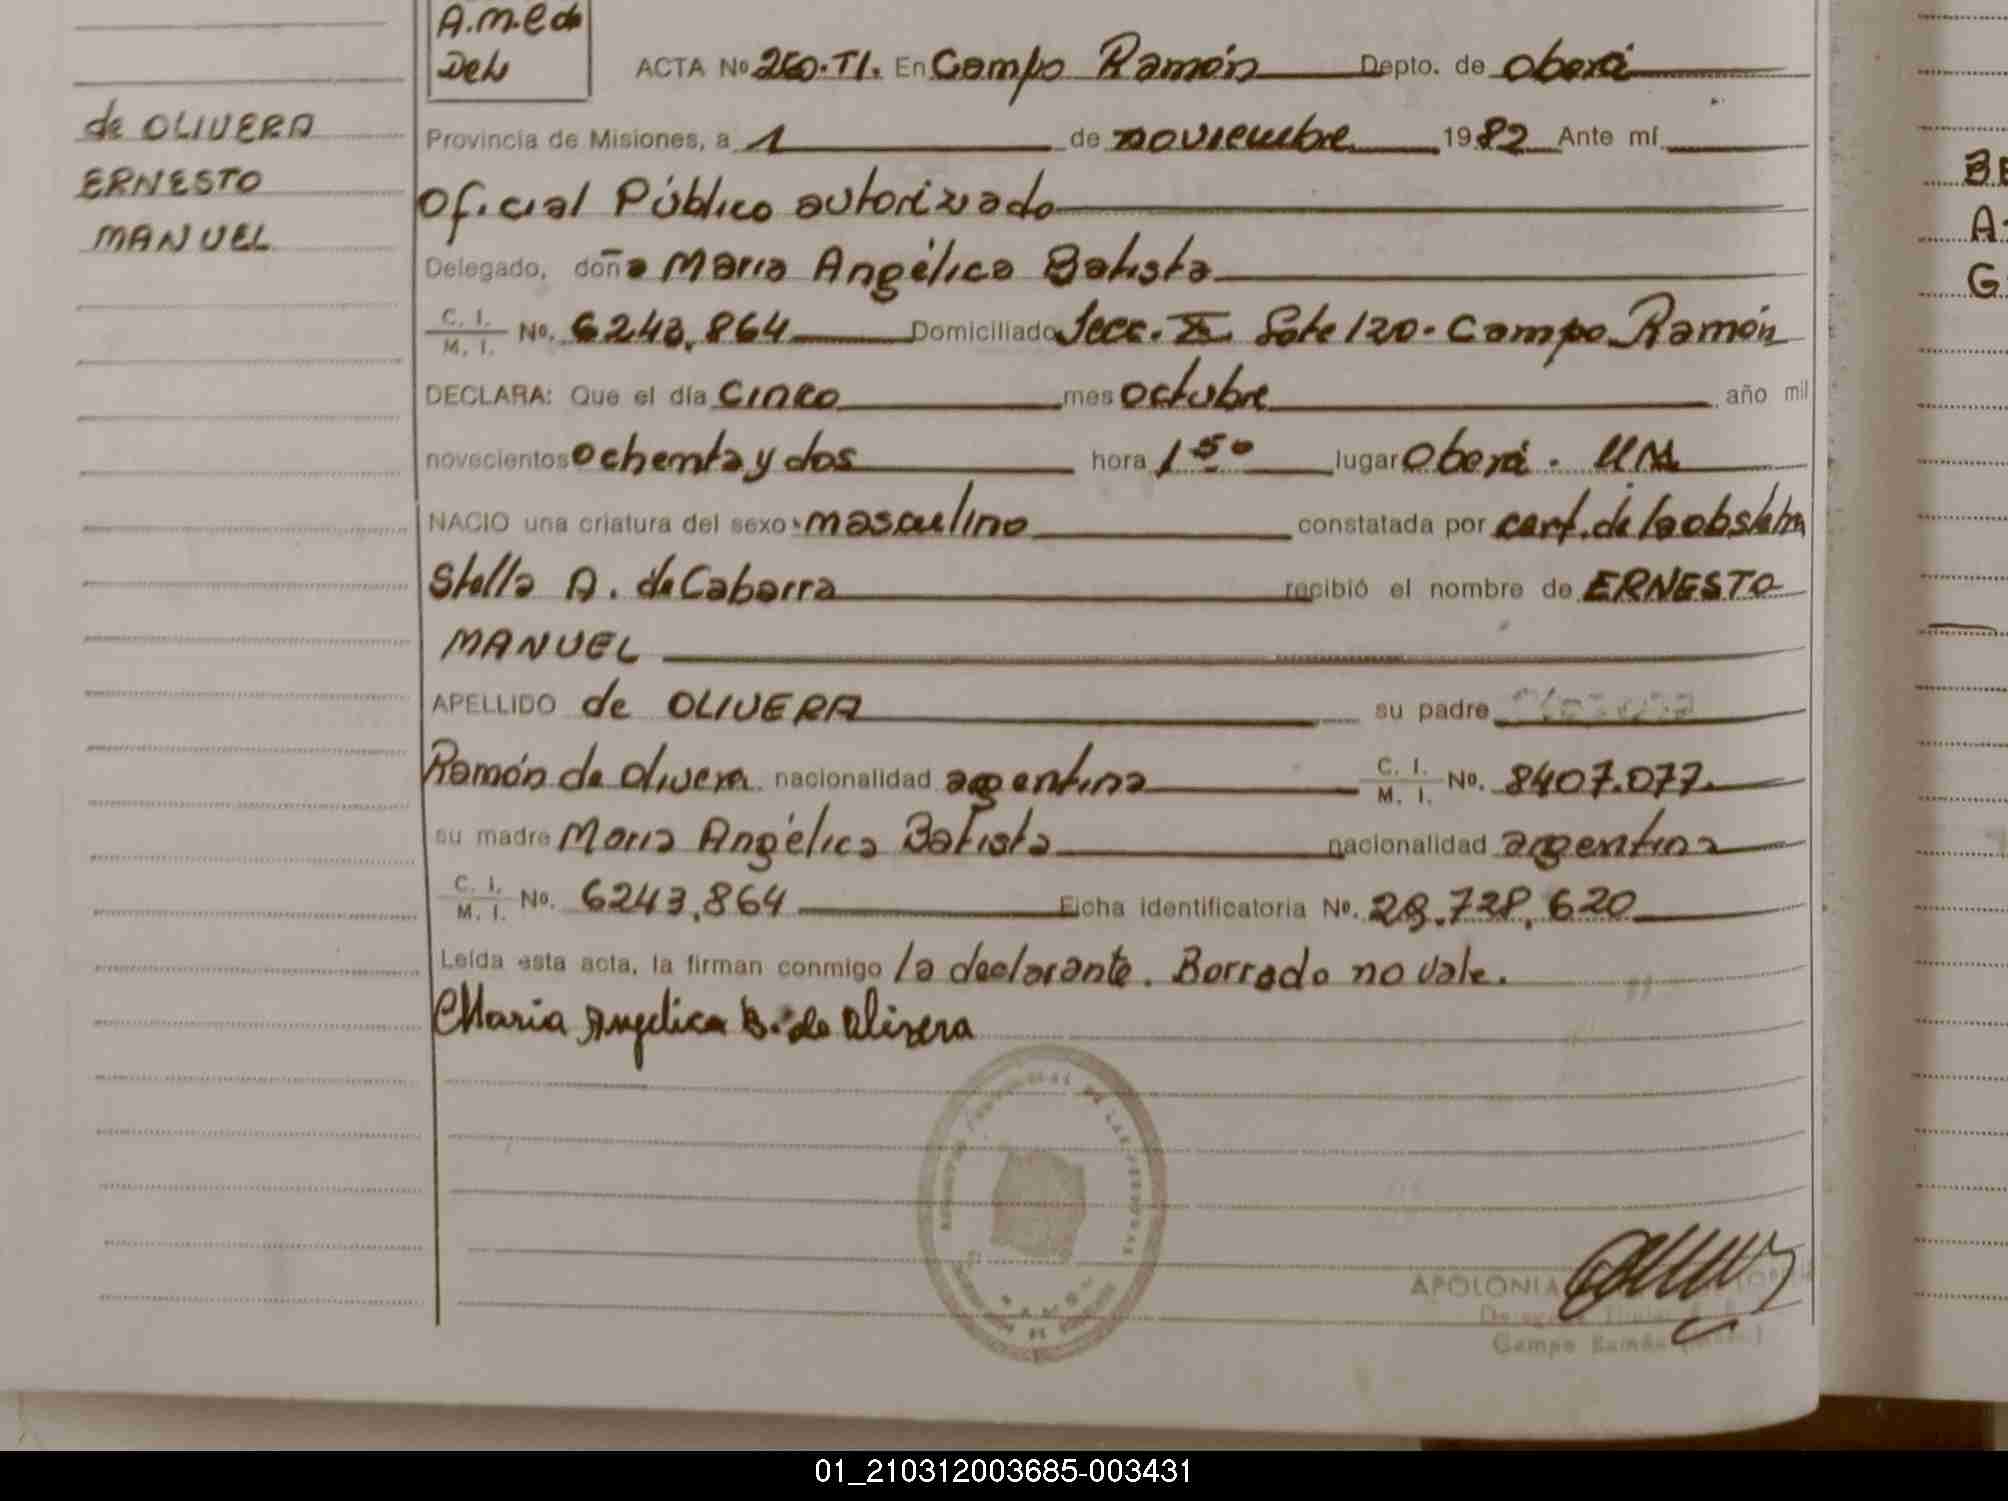 A.M.E do
Deh
ACTA No 260.TI. En Campo Ramón Depto. de Oberá
de OLIVERA
Provincia de Misiones, a 1 de noviembre 1982 Ante mí
ERNESTO
Oficial Público autorizado
MANUEL
Delegado, doña Maria Angélica Batista
C. I.
M. I. No. 6243.864 Domiciliado Secc. X Lote 120. Campo Ramón
DECLARA: Que el día cinco mes octubre año mil
novecientos ochenta y dos hora 1 50 lugar Oberá.
NACIO una criatura del sexo masculino constatada por cert. de la obstetra
Stella A. de Cabarra recibió el nombre de ERNESTO
MANUEL
APELLIDO de OLIVERA su padre
Ramón de Olivera nacionalidad argentina C. I.
M. I. No. 8407.077.
su madre Maria Angélica Batista nacionalidad argentina
C. I.
M. I. No. 6243.864 Ficha identificatoria No. 29.728.620
Leída esta acta, la firman conmigo la declarante. Borrado no vale.
Maria Angelica B. de Olivera
APOLONIA
Campo Ramón
BE
A
G
01_210312003685-003431